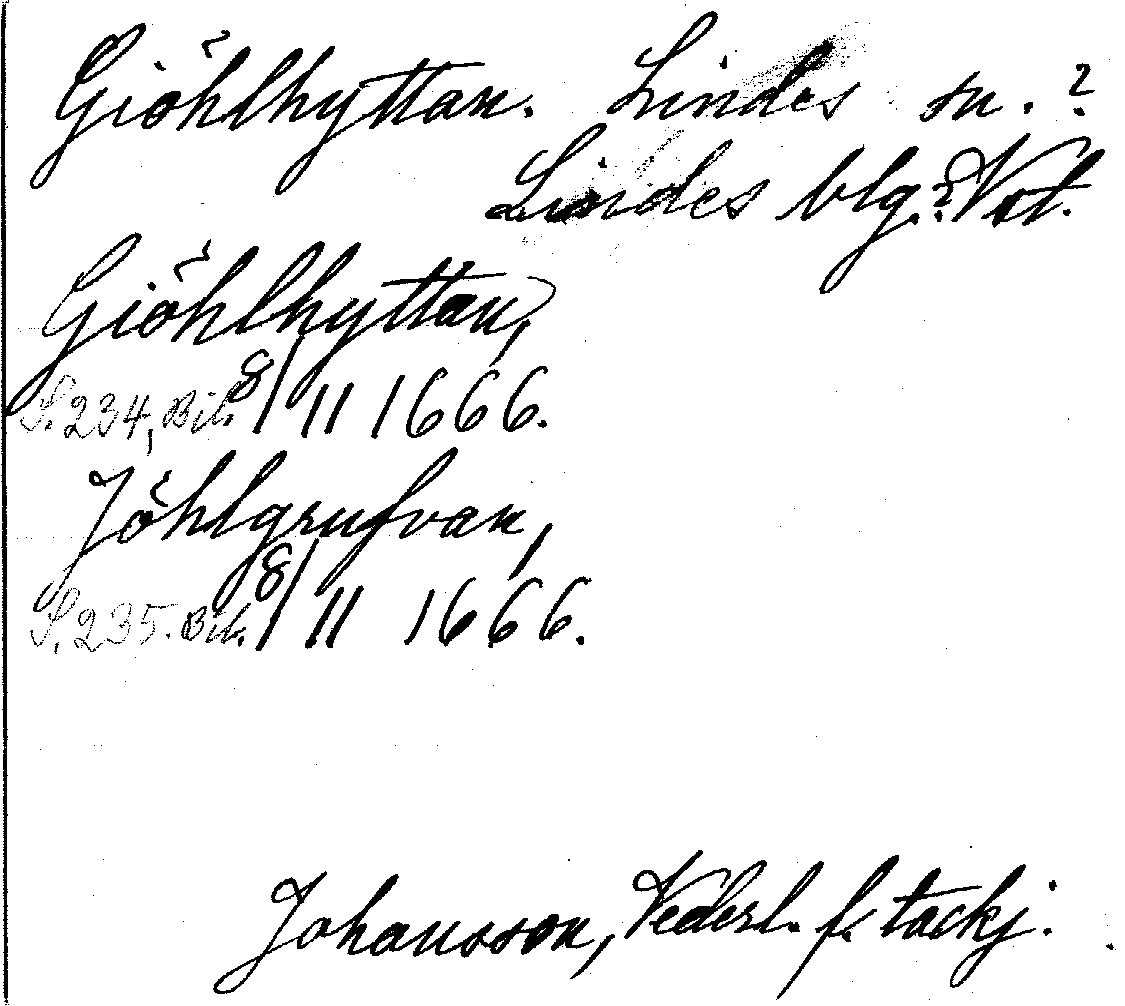 Giöhlhyttan. Lindes sn. ?
Lindes blg.? Vstl.
Giöhlhyttan,
S. 234, Bil. 8/11 1666.
Jöhlgrufvan,
S. 235. Bil. 8/11 1666.
Johansson, Vederl. f. tackj.